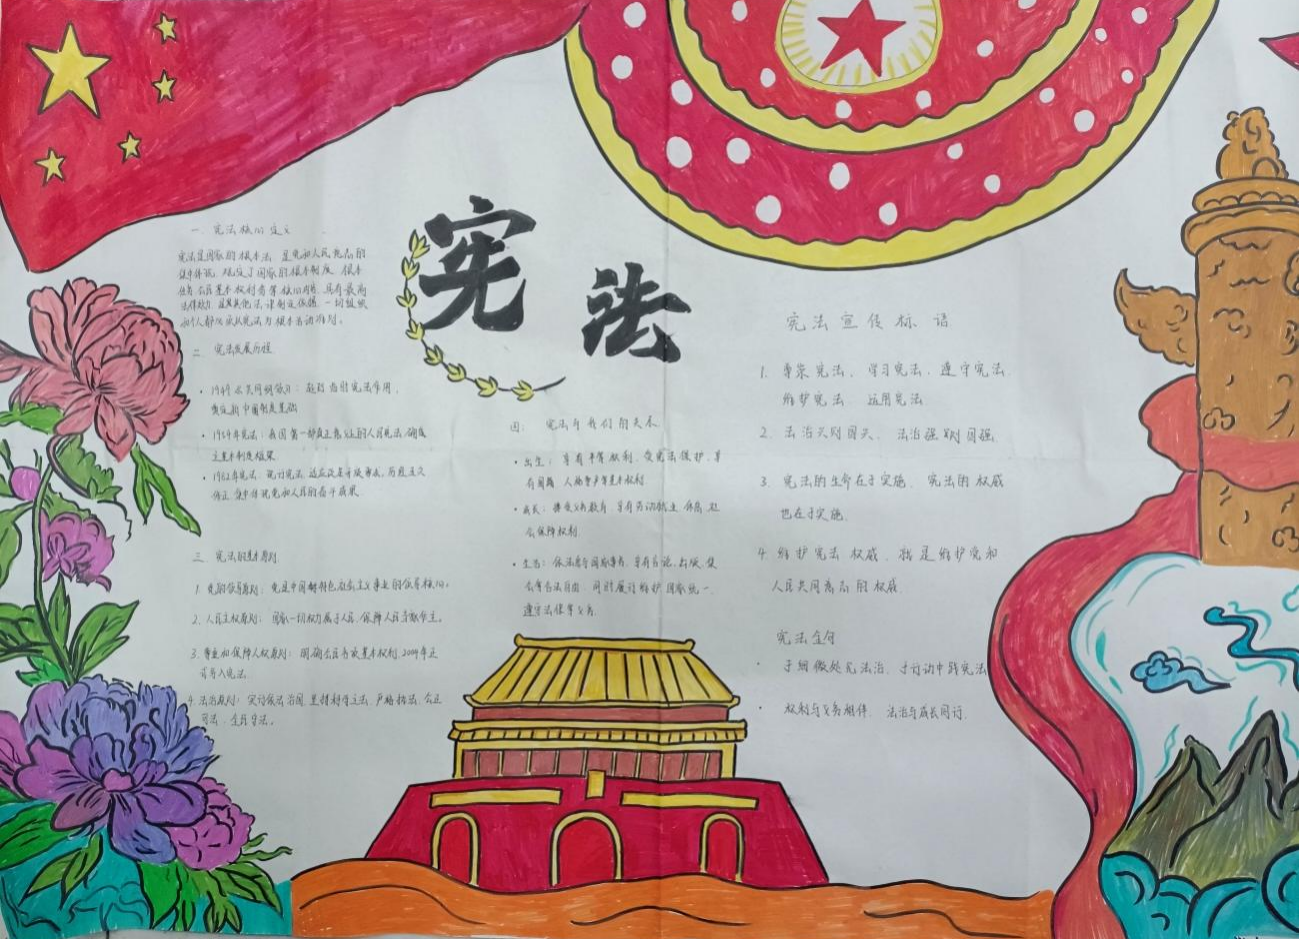 宪法
一、宪法核心定义
宪法是国家的根本法，是党和人民意志的
集中体现，规定了国家的根本制度、根本
任务、公民基本权利等核心内容，具有最高
法律效力，是其他法律制定依据，一切组织
和个人都必须以宪法为根本活动准则。
二、宪法发展历程
·1949《共同纲领》：起到临时宪法作用，
奠定新中国制度基础
·1954年宪法：我国第一部真正意义上的人民宪法，确
立基本制度框架
·1982年宪法：现行宪法，适应改革开放需求，历经五次
修正，集中体现党和人民的奋斗成果
三、宪法的基本原则
1.党的领导原则：党是中国特色社会主义事业的领导核心。
2.人民主权原则：国家一切权力属于人民，保障人民当家作主。
3.尊重和保障人权原则：明确公民各项基本权利，2004年正
式写入宪法。
4.法治原则：实行依法治国，坚持科学立法、严格执法、公正
司法、全民守法。
四：宪法与我们的关系
·出生：享有平等权利，受宪法保护，享
有国籍、人格尊严等基本权利
·成长：接受义务教育，享有劳动就业、休息、社
会保障权利
·生活：依法参与国家事务，享有言论、出版、集
会等合法自由，同时履行维护国家统一、
遵守法律等义务
宪法宣传标语
1.尊崇宪法、学习宪法、遵守宪法、
维护宪法、运用宪法
2.法治兴则国兴，法治强则国强
3.宪法的生命在于实施，宪法的权威
也在于实施。
4.维护宪法权威，就是维护党和
人民共同意志的权威
宪法金句
·于细微处见法治，于行动中践宪法
·权利与义务相伴，法治与成长同行.